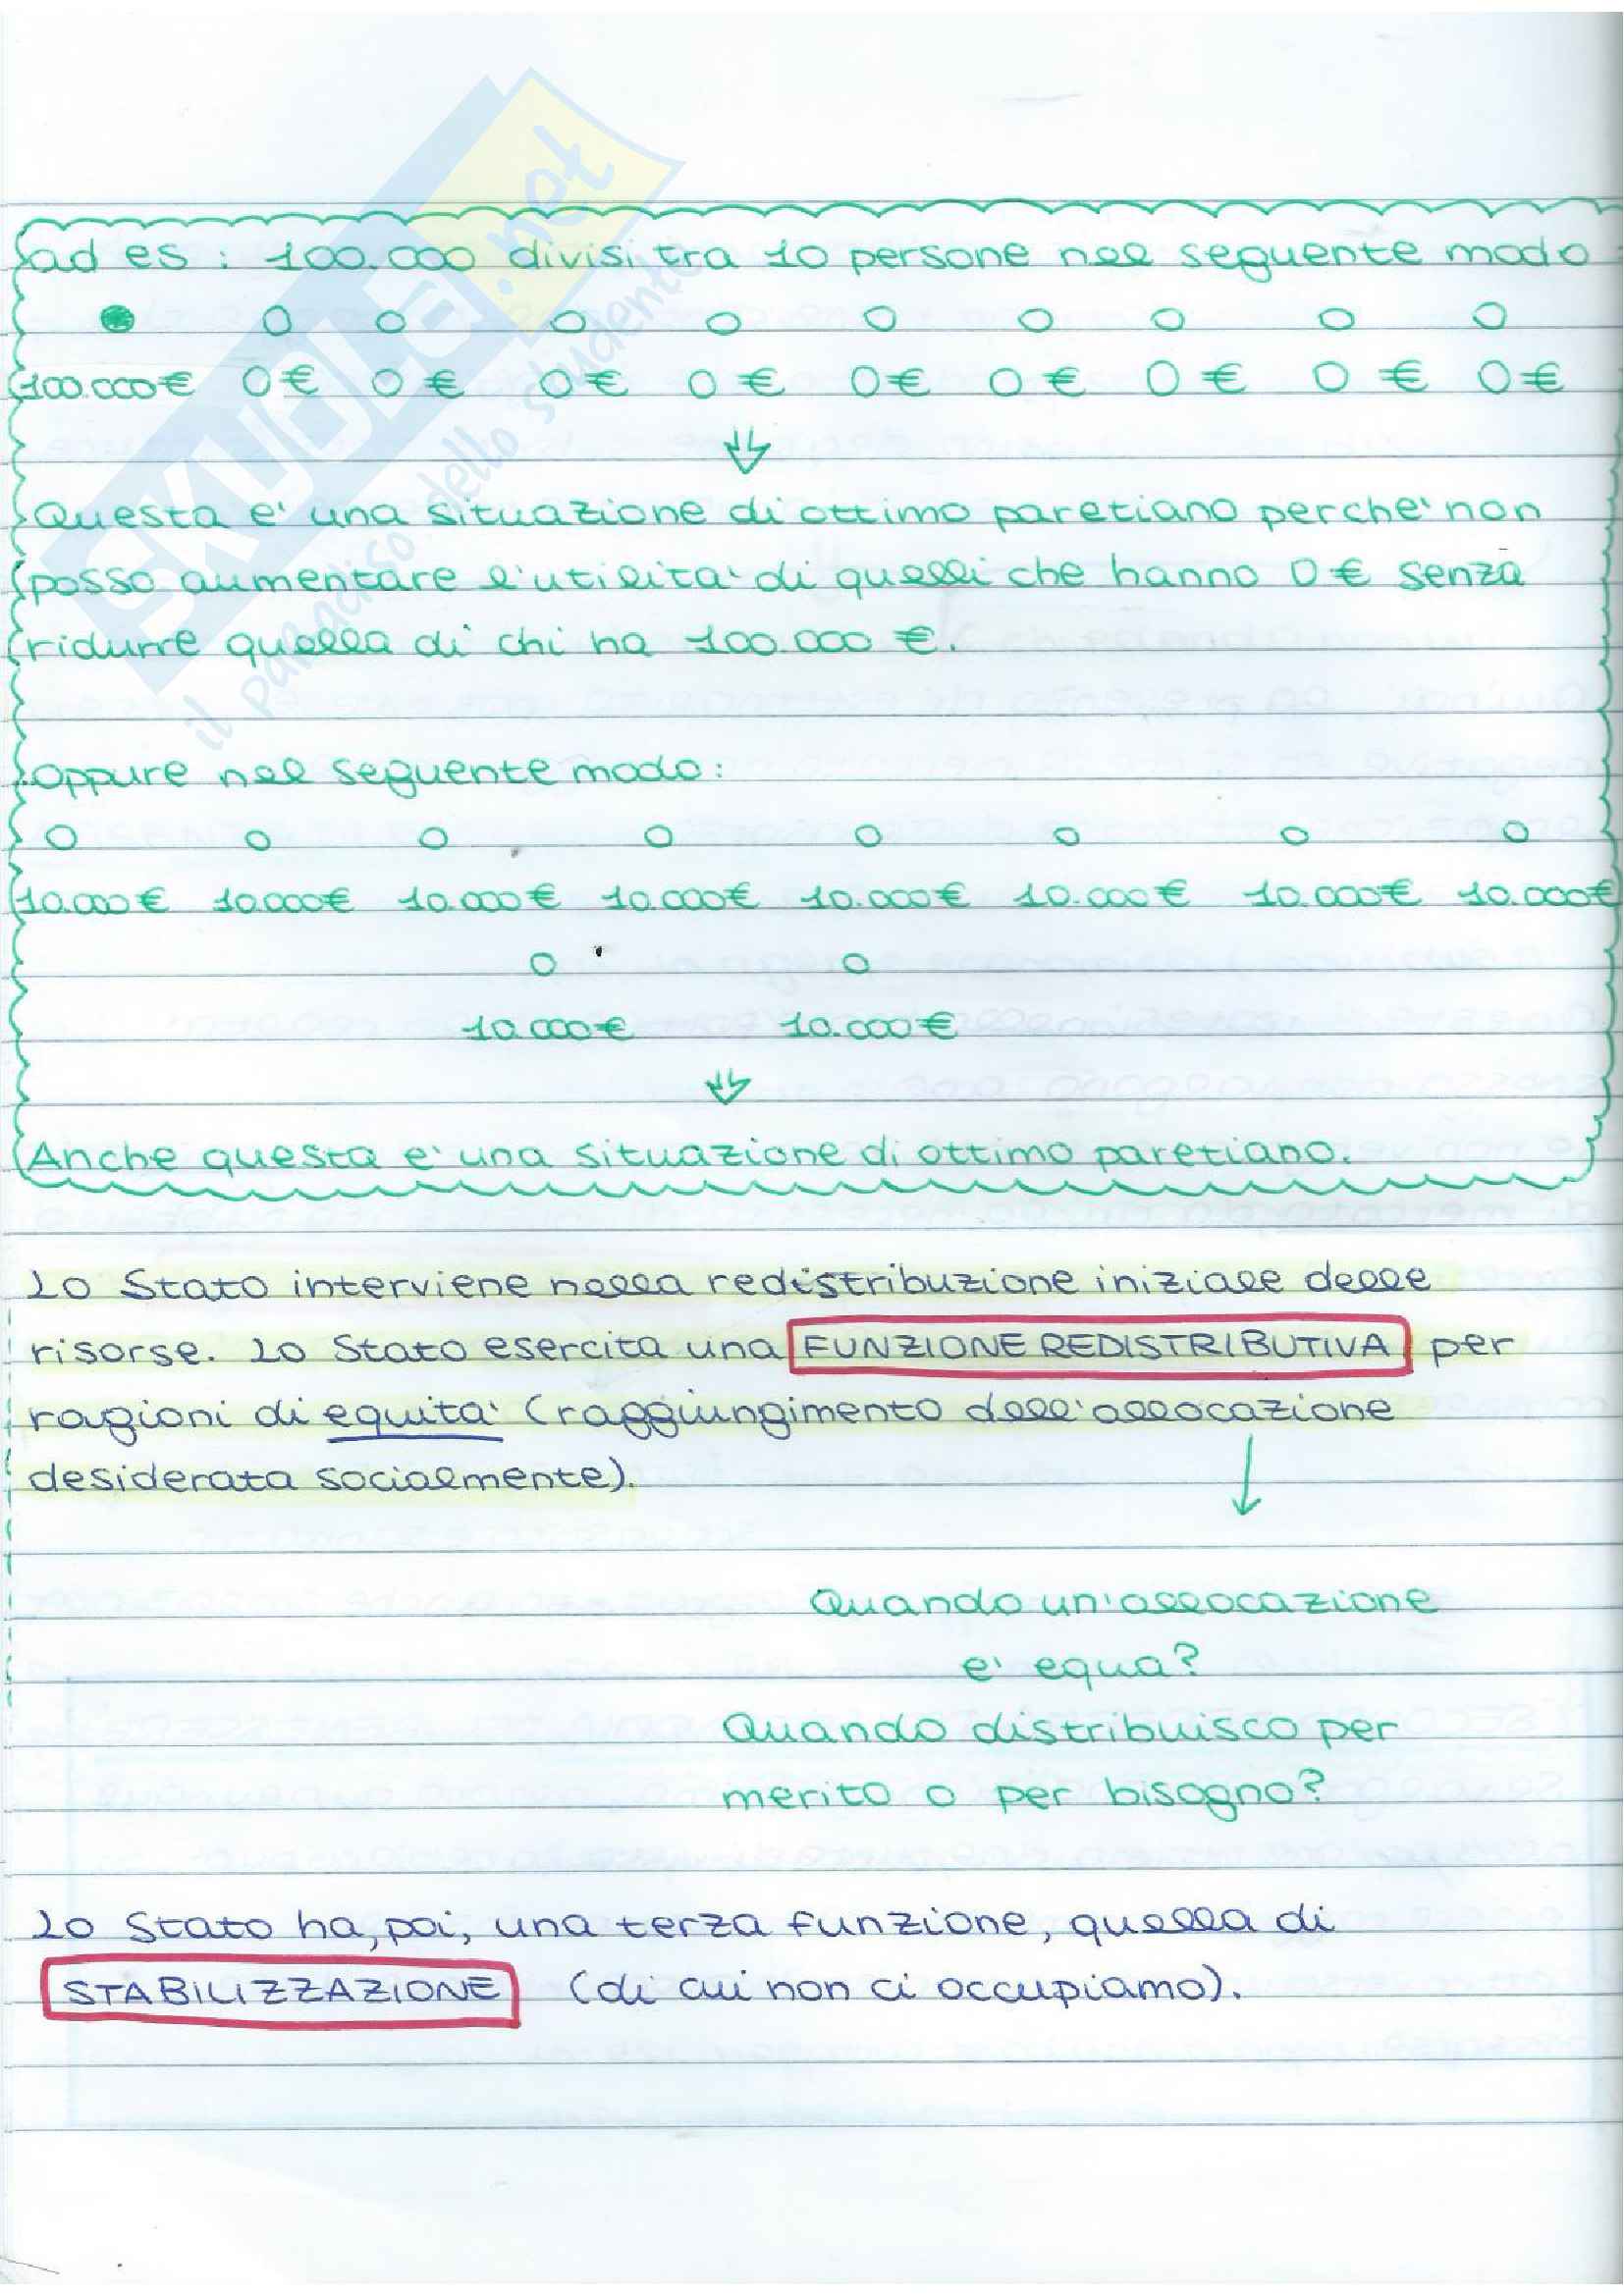 SKUOLA.net
il paradiso dello studente
ad es : 100.000 divisi tra 10 persone nel seguente modo
100.000€ 0€ 0€ 0€ 0€ 0€ 0€ 0€ 0€ 0€
Questa e' una situazione di ottimo paretiano perche' non
posso aumentare l'utilita' di quelli che hanno 0€ senza
ridurre quella di chi ha 100.000 €.
oppure nel seguente modo:
10.000€ 10.000€ 10.000€ 10.000€ 10.000€ 10.000€ 10.000€ 10.000€
10.000€ 10.000€
Anche questa e' una situazione di ottimo paretiano.
Lo Stato interviene nella redistribuzione iniziale delle
risorse. Lo Stato esercita una FUNZIONE REDISTRIBUTIVA per
ragioni di equita' (raggiungimento dell'allocazione
desiderata socialmente).
Quando un'allocazione
e' equa?
Quando distribuisco per
merito o per bisogno?
Lo Stato ha, poi, una terza funzione, quella di
STABILIZZAZIONE (di cui non ci occupiamo).